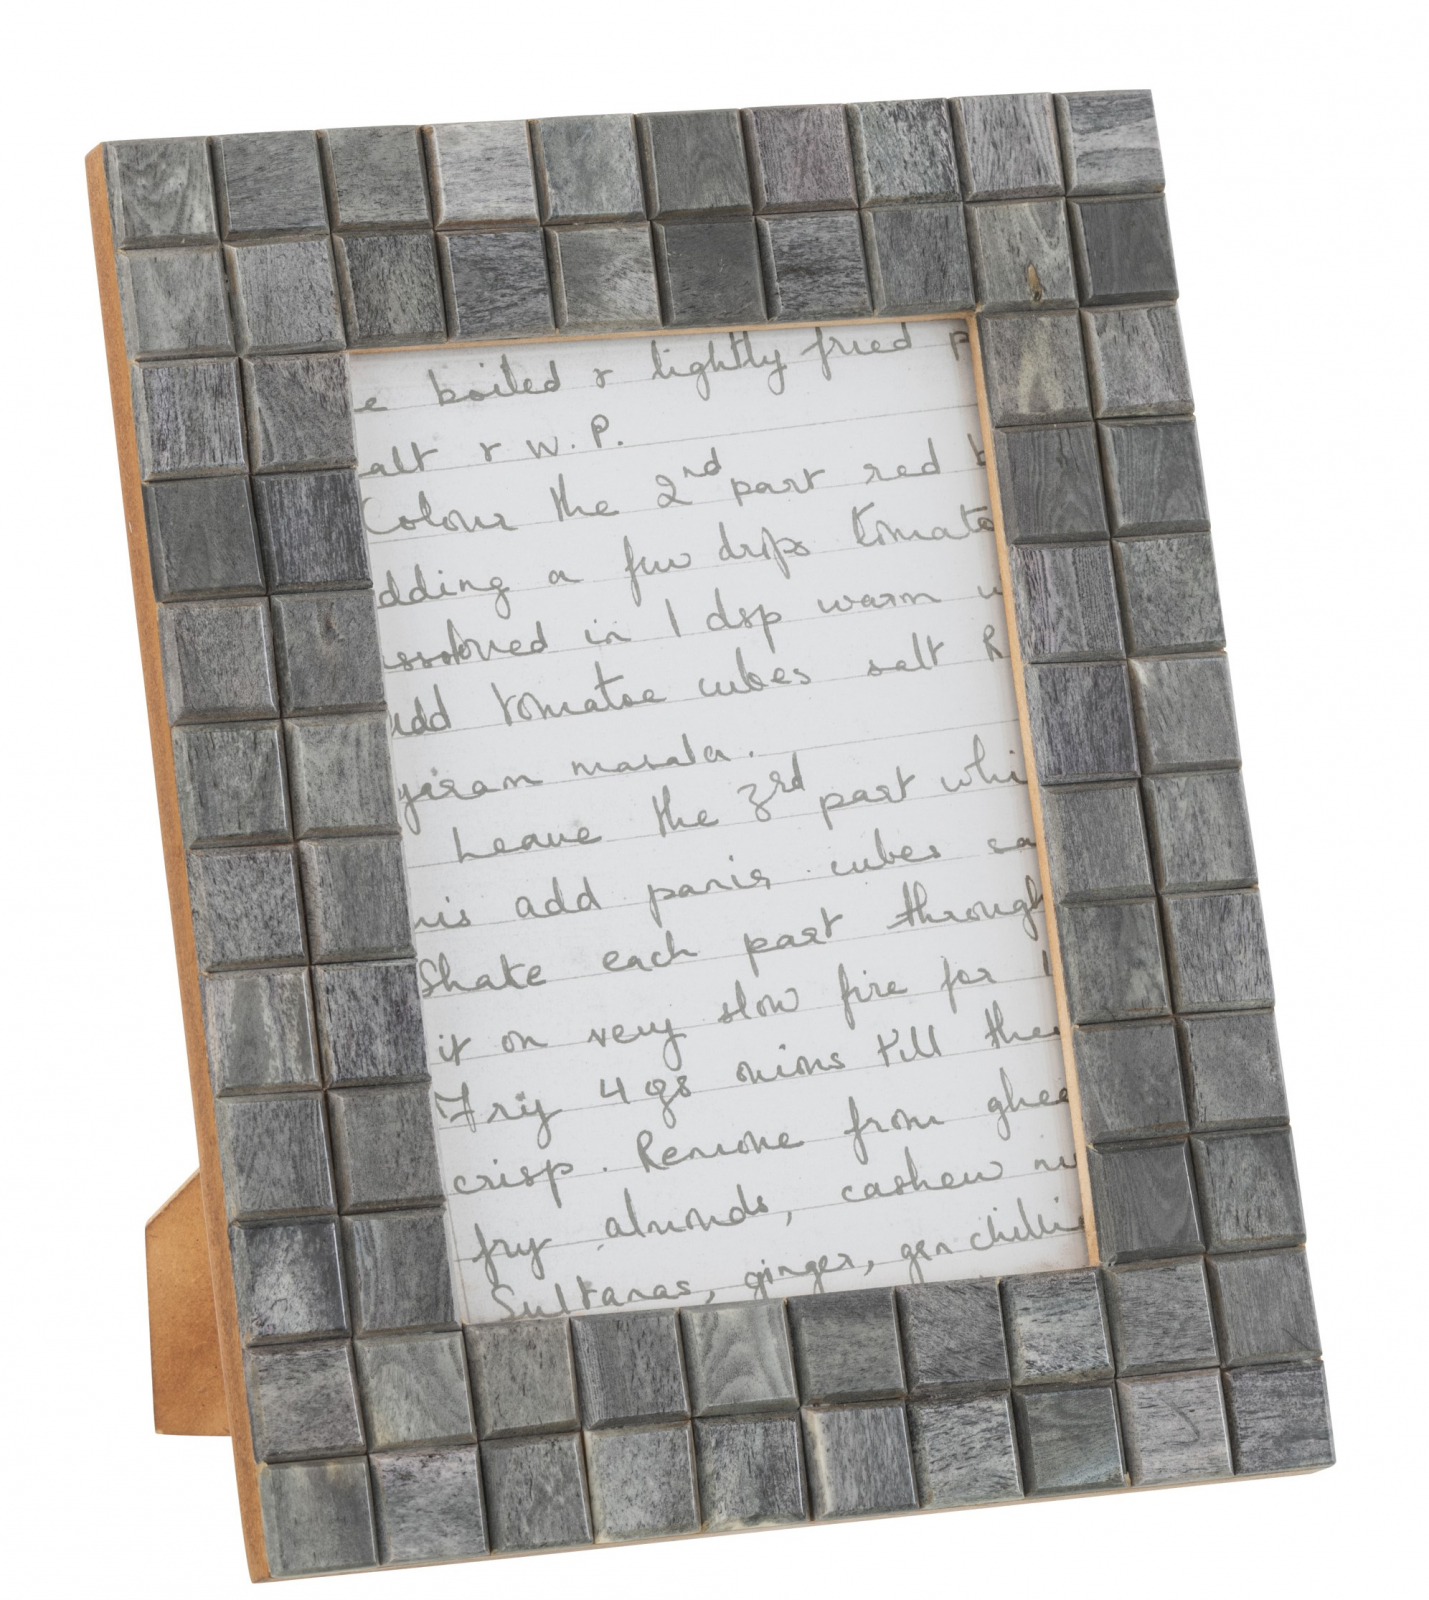 e boiled & lightly fried p
alt & W.P.
Colour the 2nd part red b
dding a few drops tomato
ssolved in 1 dsp warm w
add tomatoe cubes salt R
garam masala.
Leave the 3rd part whi
his add panir cubes sa
Shake each part through
it on very slow fire for 1
Fry 4 onions till they
crisp. Remove from ghee
fry almonds, cashew nu
Sultanas, ginger, gcn chillie